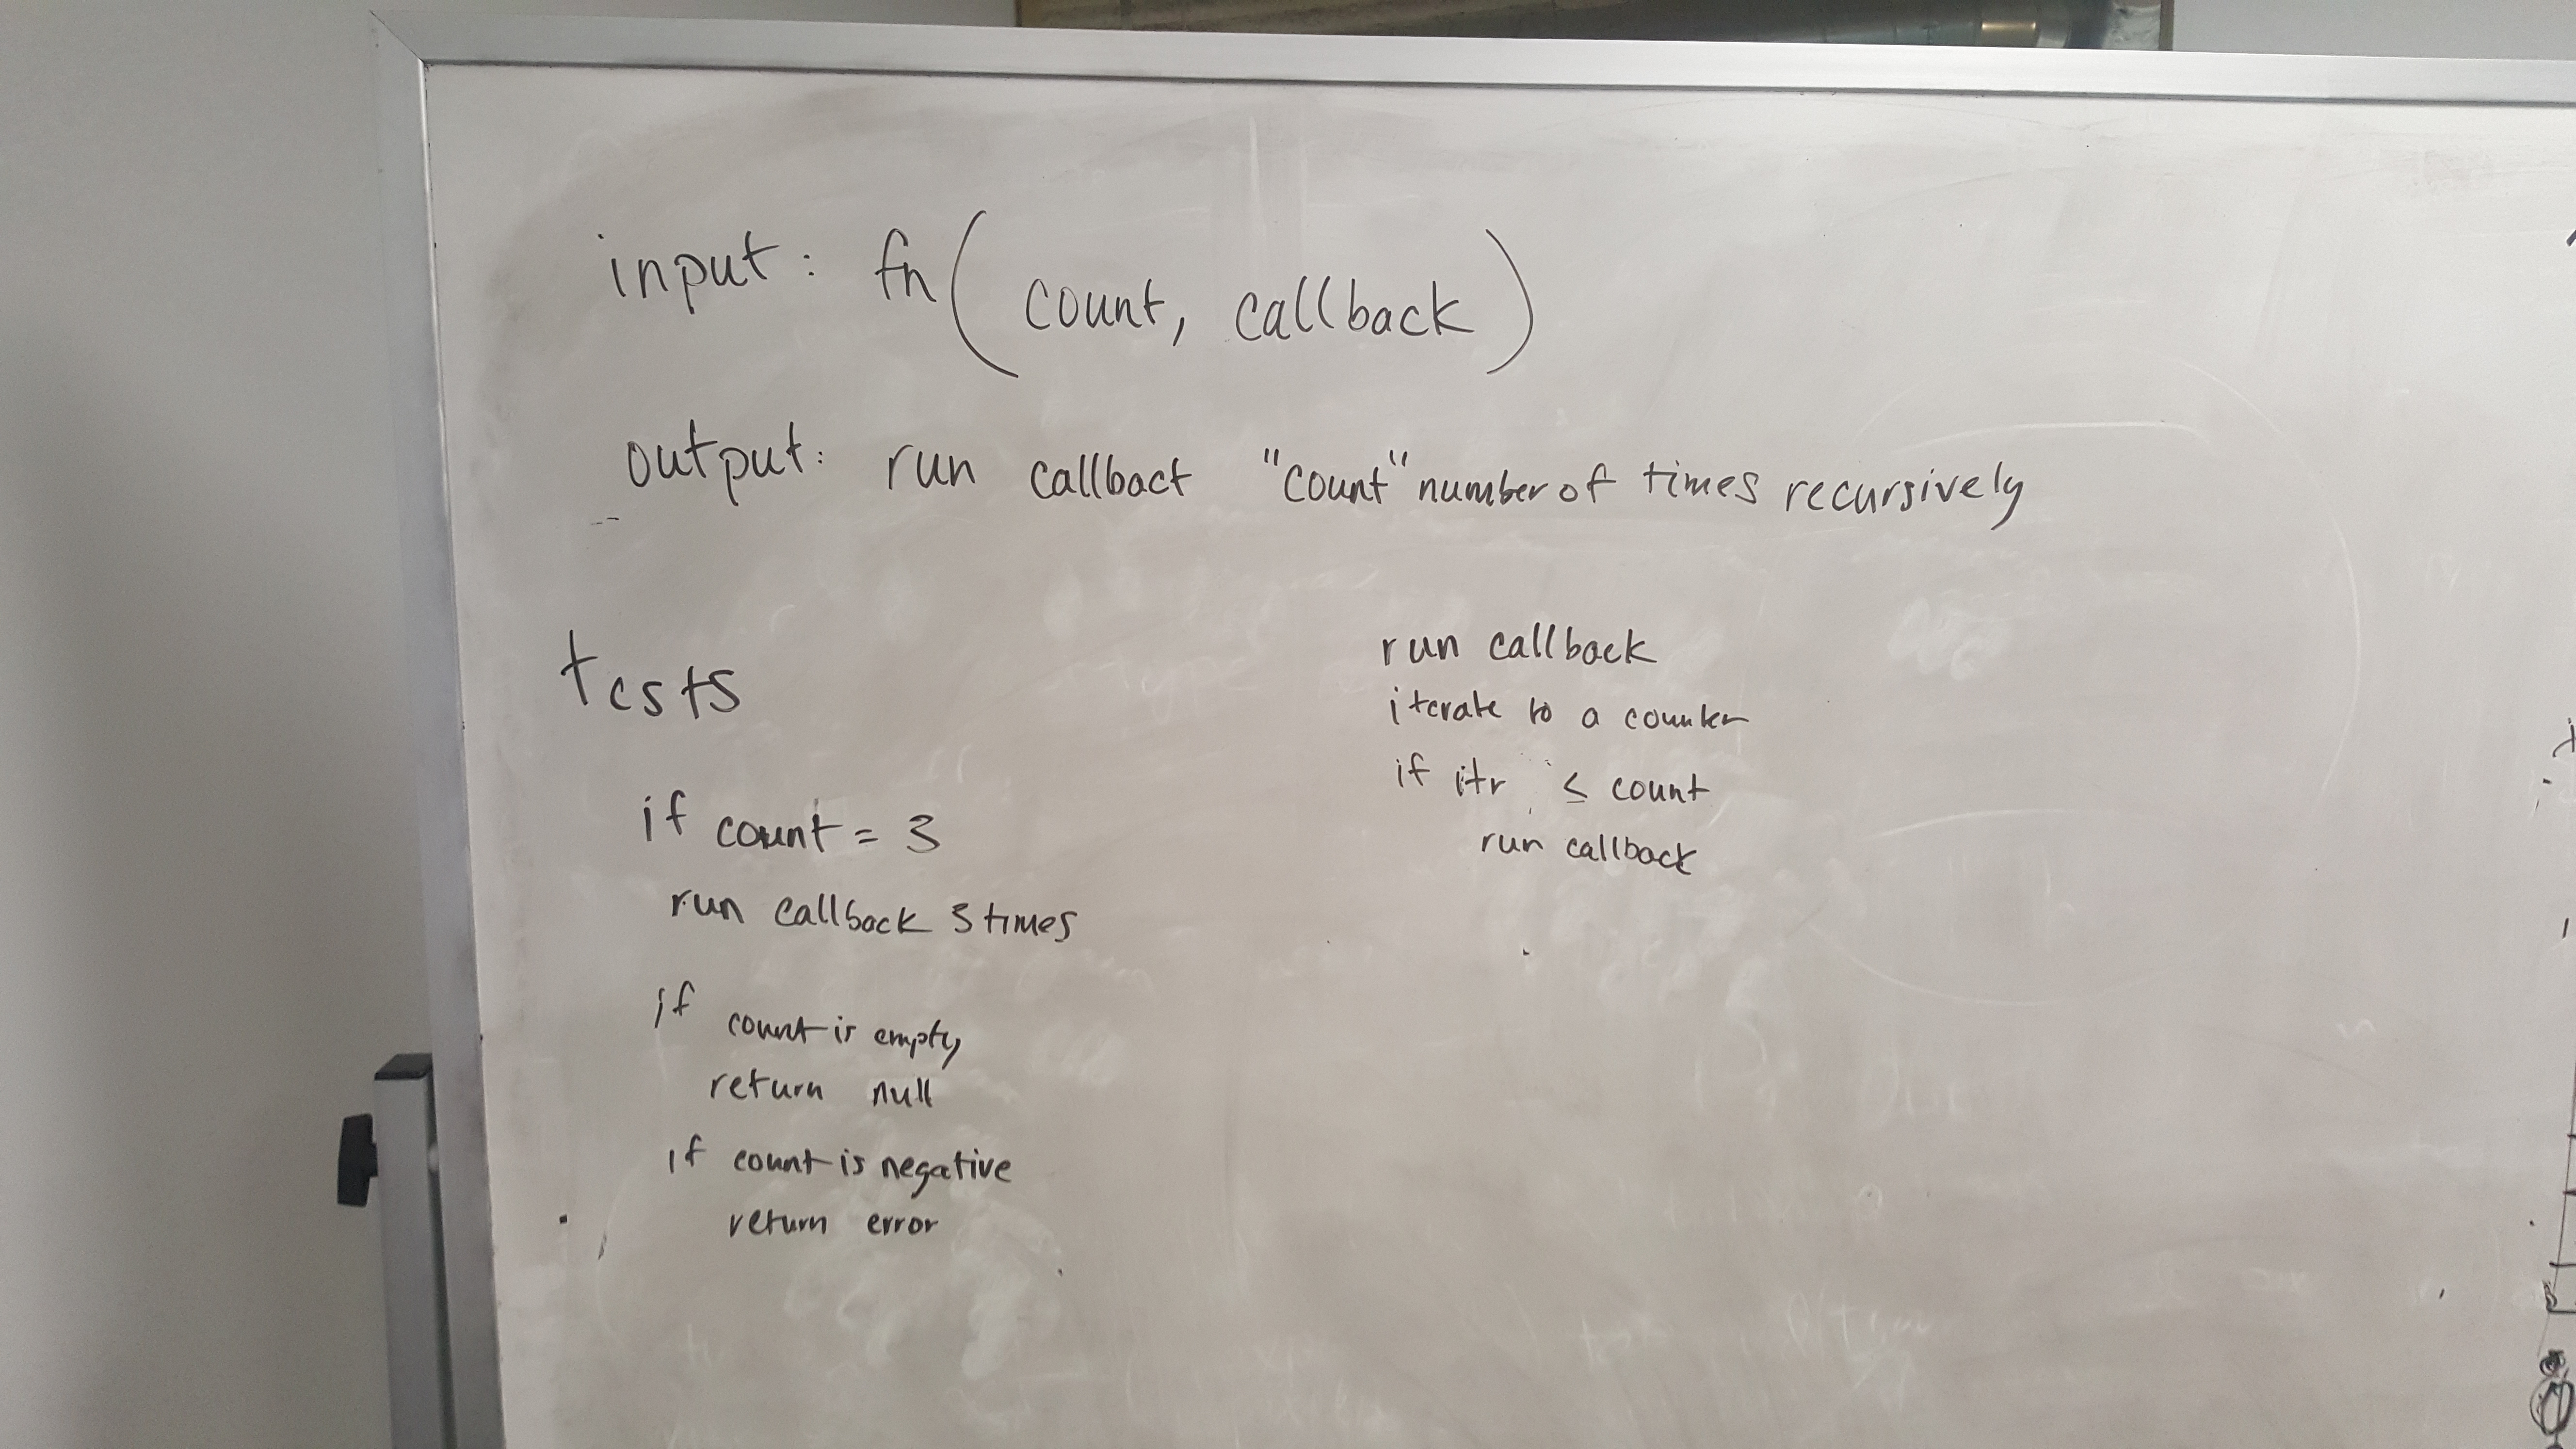 input: fn( count, callback )
output: run callback "count" number of times recursively
tests
if count = 3
run callback 3 times
if count is empty
return null
if count is negative
return error
run callback
iterate to a counter
if itr ≤ count
run callback